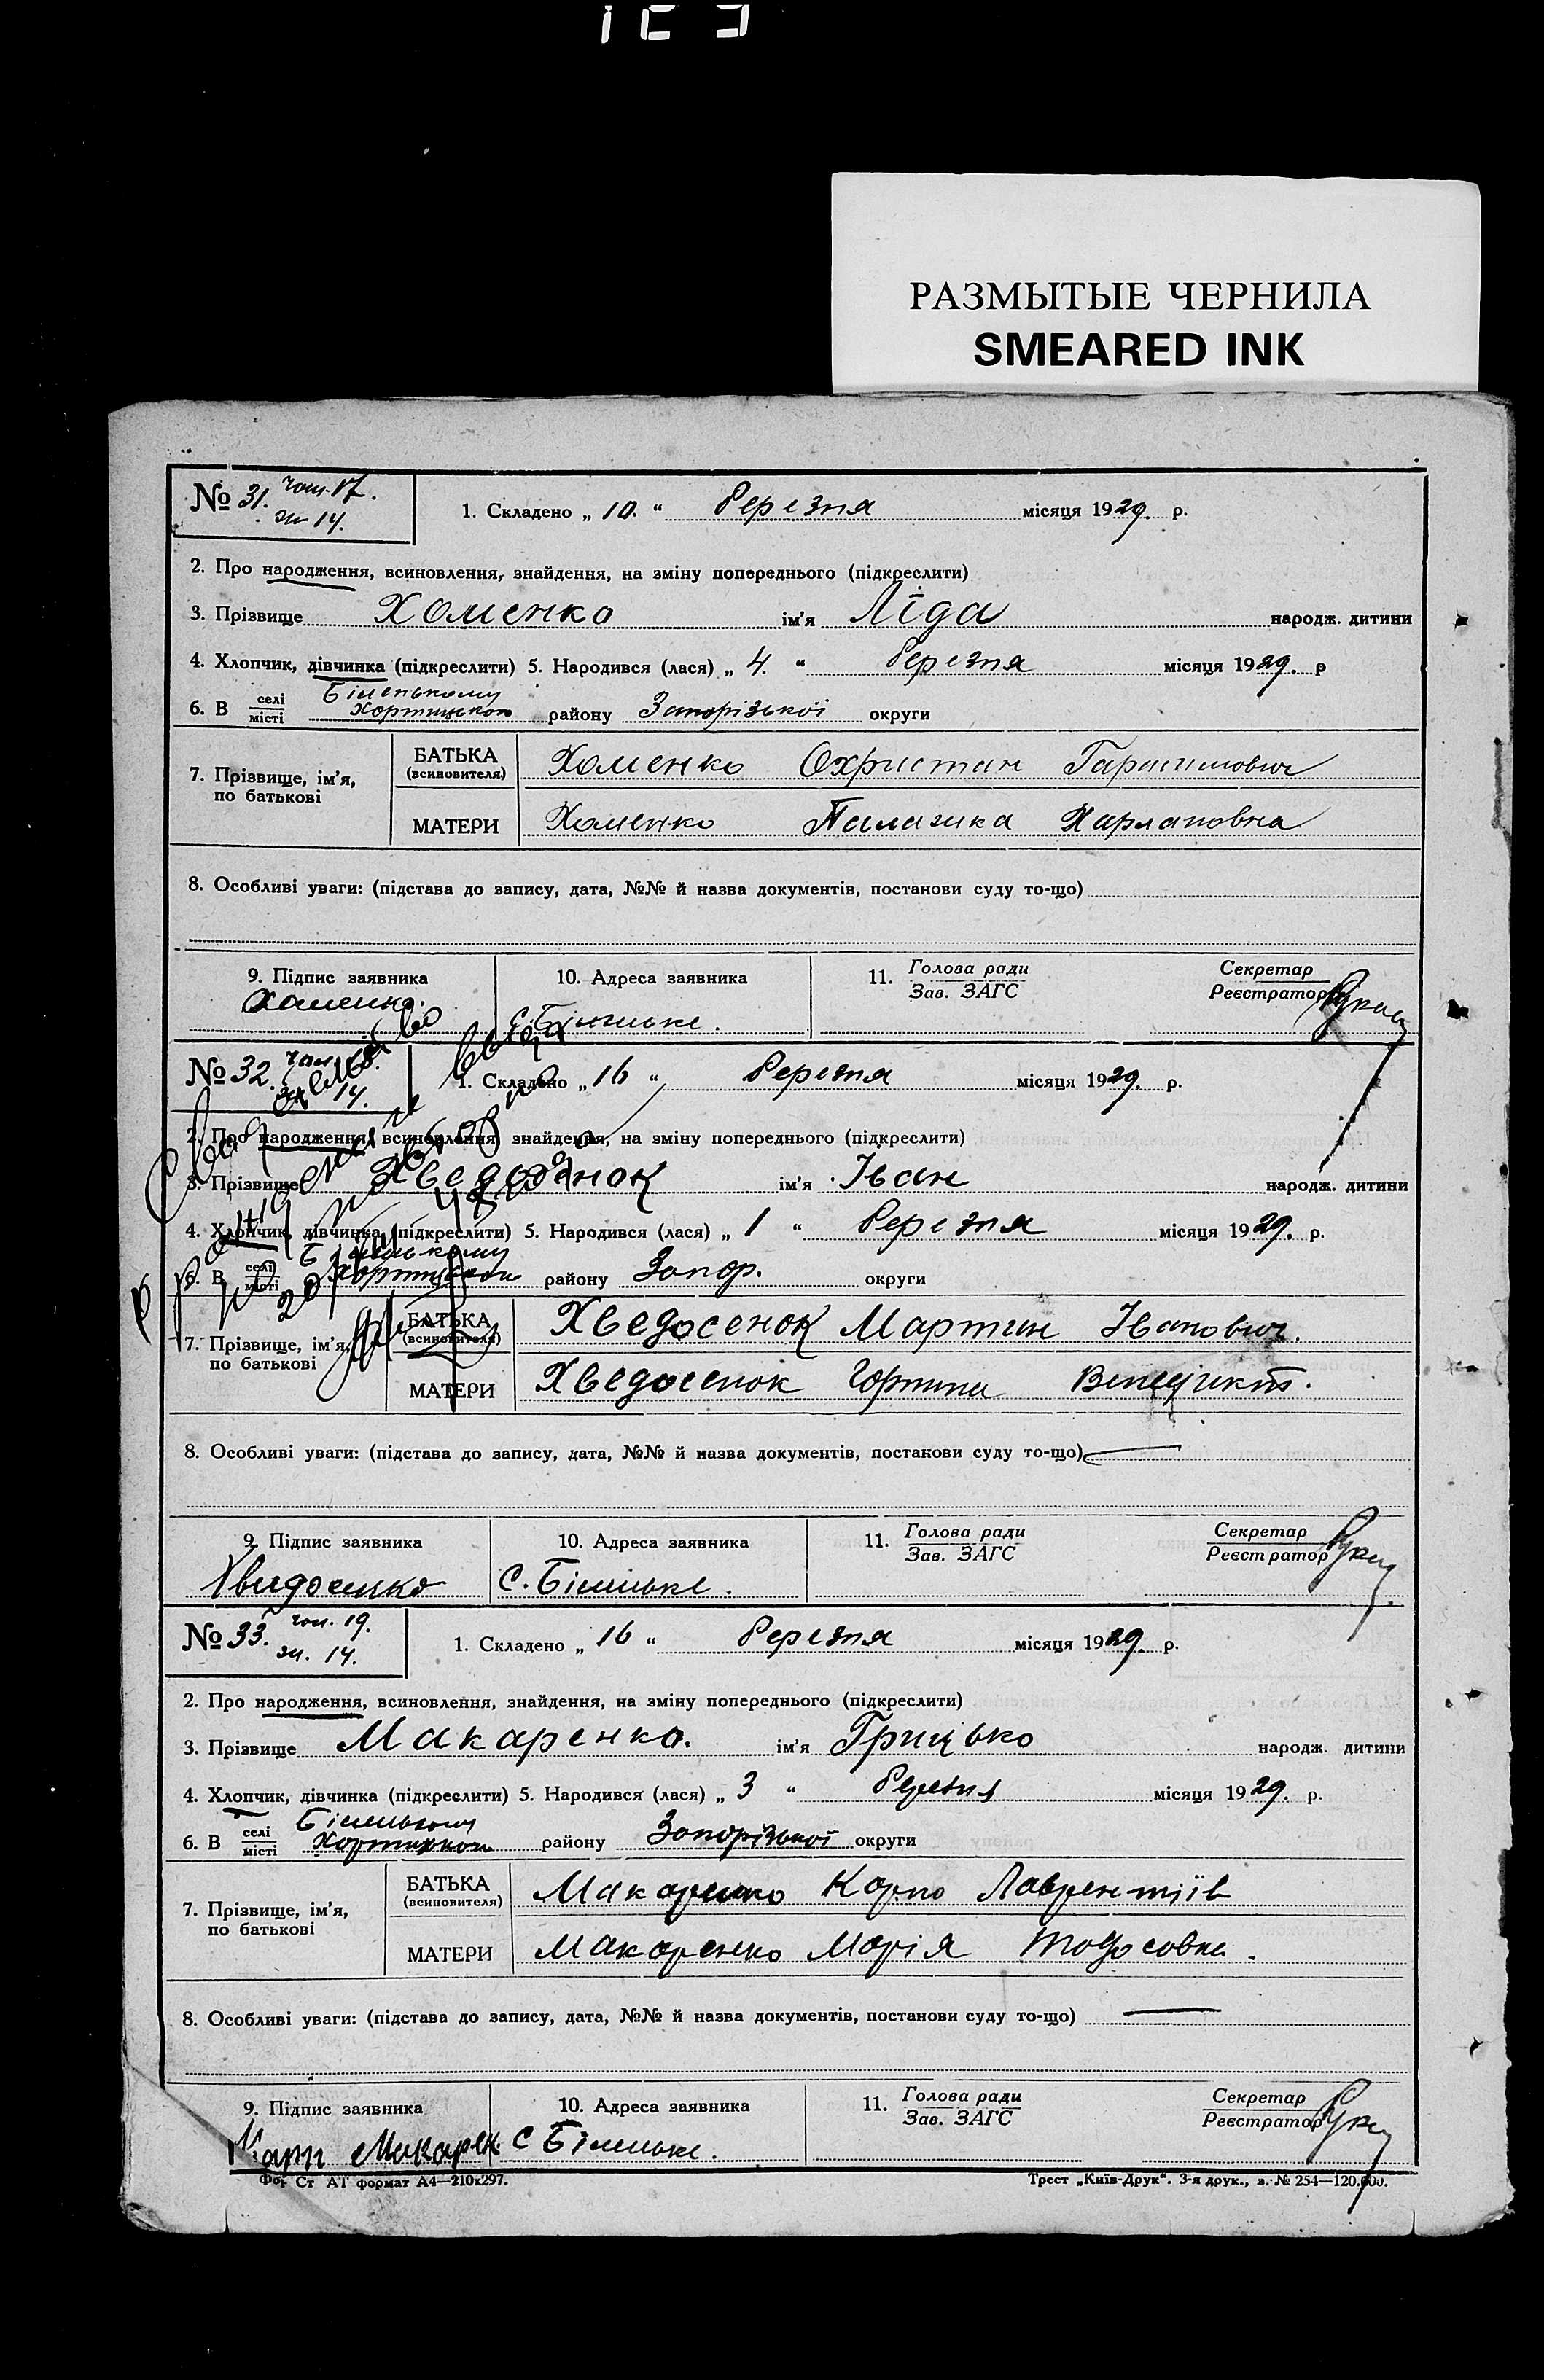 РАЗМЫТЫЕ ЧЕРНИЛА
SMEARED INK
№ 31. чол. 17.
жн 14.
1. Складено „ 10. “ березня місяця 1929. р.
2. Про народження, всиновлення, знайдення, на зміну попереднього (підкреслити)
3. Прізвище Хоменко ім'я Ліда народж. дитини
4. Хлопчик, дівчинка (підкреслити) 5. Народився (лася) „ 4. “ березня місяця 1929. р
6. В селі/місті Біленькому Хортицьком району Запорізької округи
7. Прізвище, ім'я, по батькові
БАТЬКА (всиновителя) Хоменко Охристан Гарасимович
МАТЕРИ Хоменко Палажка Харлановна
8. Особливі уваги: (підстава до запису, дата, №№ й назва документів, постанови суду то-що)
9. Підпис заявника 10. Адреса заявника 11. Голова ради / Зав. ЗАГС Секретар / Реєстратор
Хоменко. с. Біленьке.
№ 32. чол. 18.
жн 14.
1. Складено „ 16 “ березня місяця 1929. р.
2. Про народження, всиновлення, знайдення, на зміну попереднього (підкреслити)
3. Прізвище Хведосенок ім'я Іван народж. дитини
4. Хлопчик, дівчинка (підкреслити) 5. Народився (лася) „ 1 “ березня місяця 1929. р.
6. В селі/місті Біленькому Хортицьком району Запор. округи
7. Прізвище, ім'я, по батькові
БАТЬКА (всиновителя) Хведосенок Мартин Іванович.
МАТЕРИ Хведосенок Горпина Венедикт.
8. Особливі уваги: (підстава до запису, дата, №№ й назва документів, постанови суду то-що)
9. Підпис заявника 10. Адреса заявника 11. Голова ради / Зав. ЗАГС Секретар / Реєстратор
Хведосенко с. Біленьке.
№ 33. чол. 19.
жн. 14.
1. Складено „ 16 “ березня місяця 1929. р.
2. Про народження, всиновлення, знайдення, на зміну попереднього (підкреслити)
3. Прізвище Макаренко. ім'я Грицько народж. дитини
4. Хлопчик, дівчинка (підкреслити) 5. Народився (лася) „ 3 “ березня місяця 1929. р.
6. В селі/місті Біленькому Хортицьком району Запорізької округи
7. Прізвище, ім'я, по батькові
БАТЬКА (всиновителя) Макаренко Карпо Лаврентіїв
МАТЕРИ Макаренко Марія Тодосовна.
8. Особливі уваги: (підстава до запису, дата, №№ й назва документів, постанови суду то-що)
9. Підпис заявника 10. Адреса заявника 11. Голова ради / Зав. ЗАГС Секретар / Реєстратор
Карп Макарен. с Біленьке.
Фор Ст АГ формат А4—210х297. Трест „Київ-Друк“. 3-я друк., з. № 254—120.000.